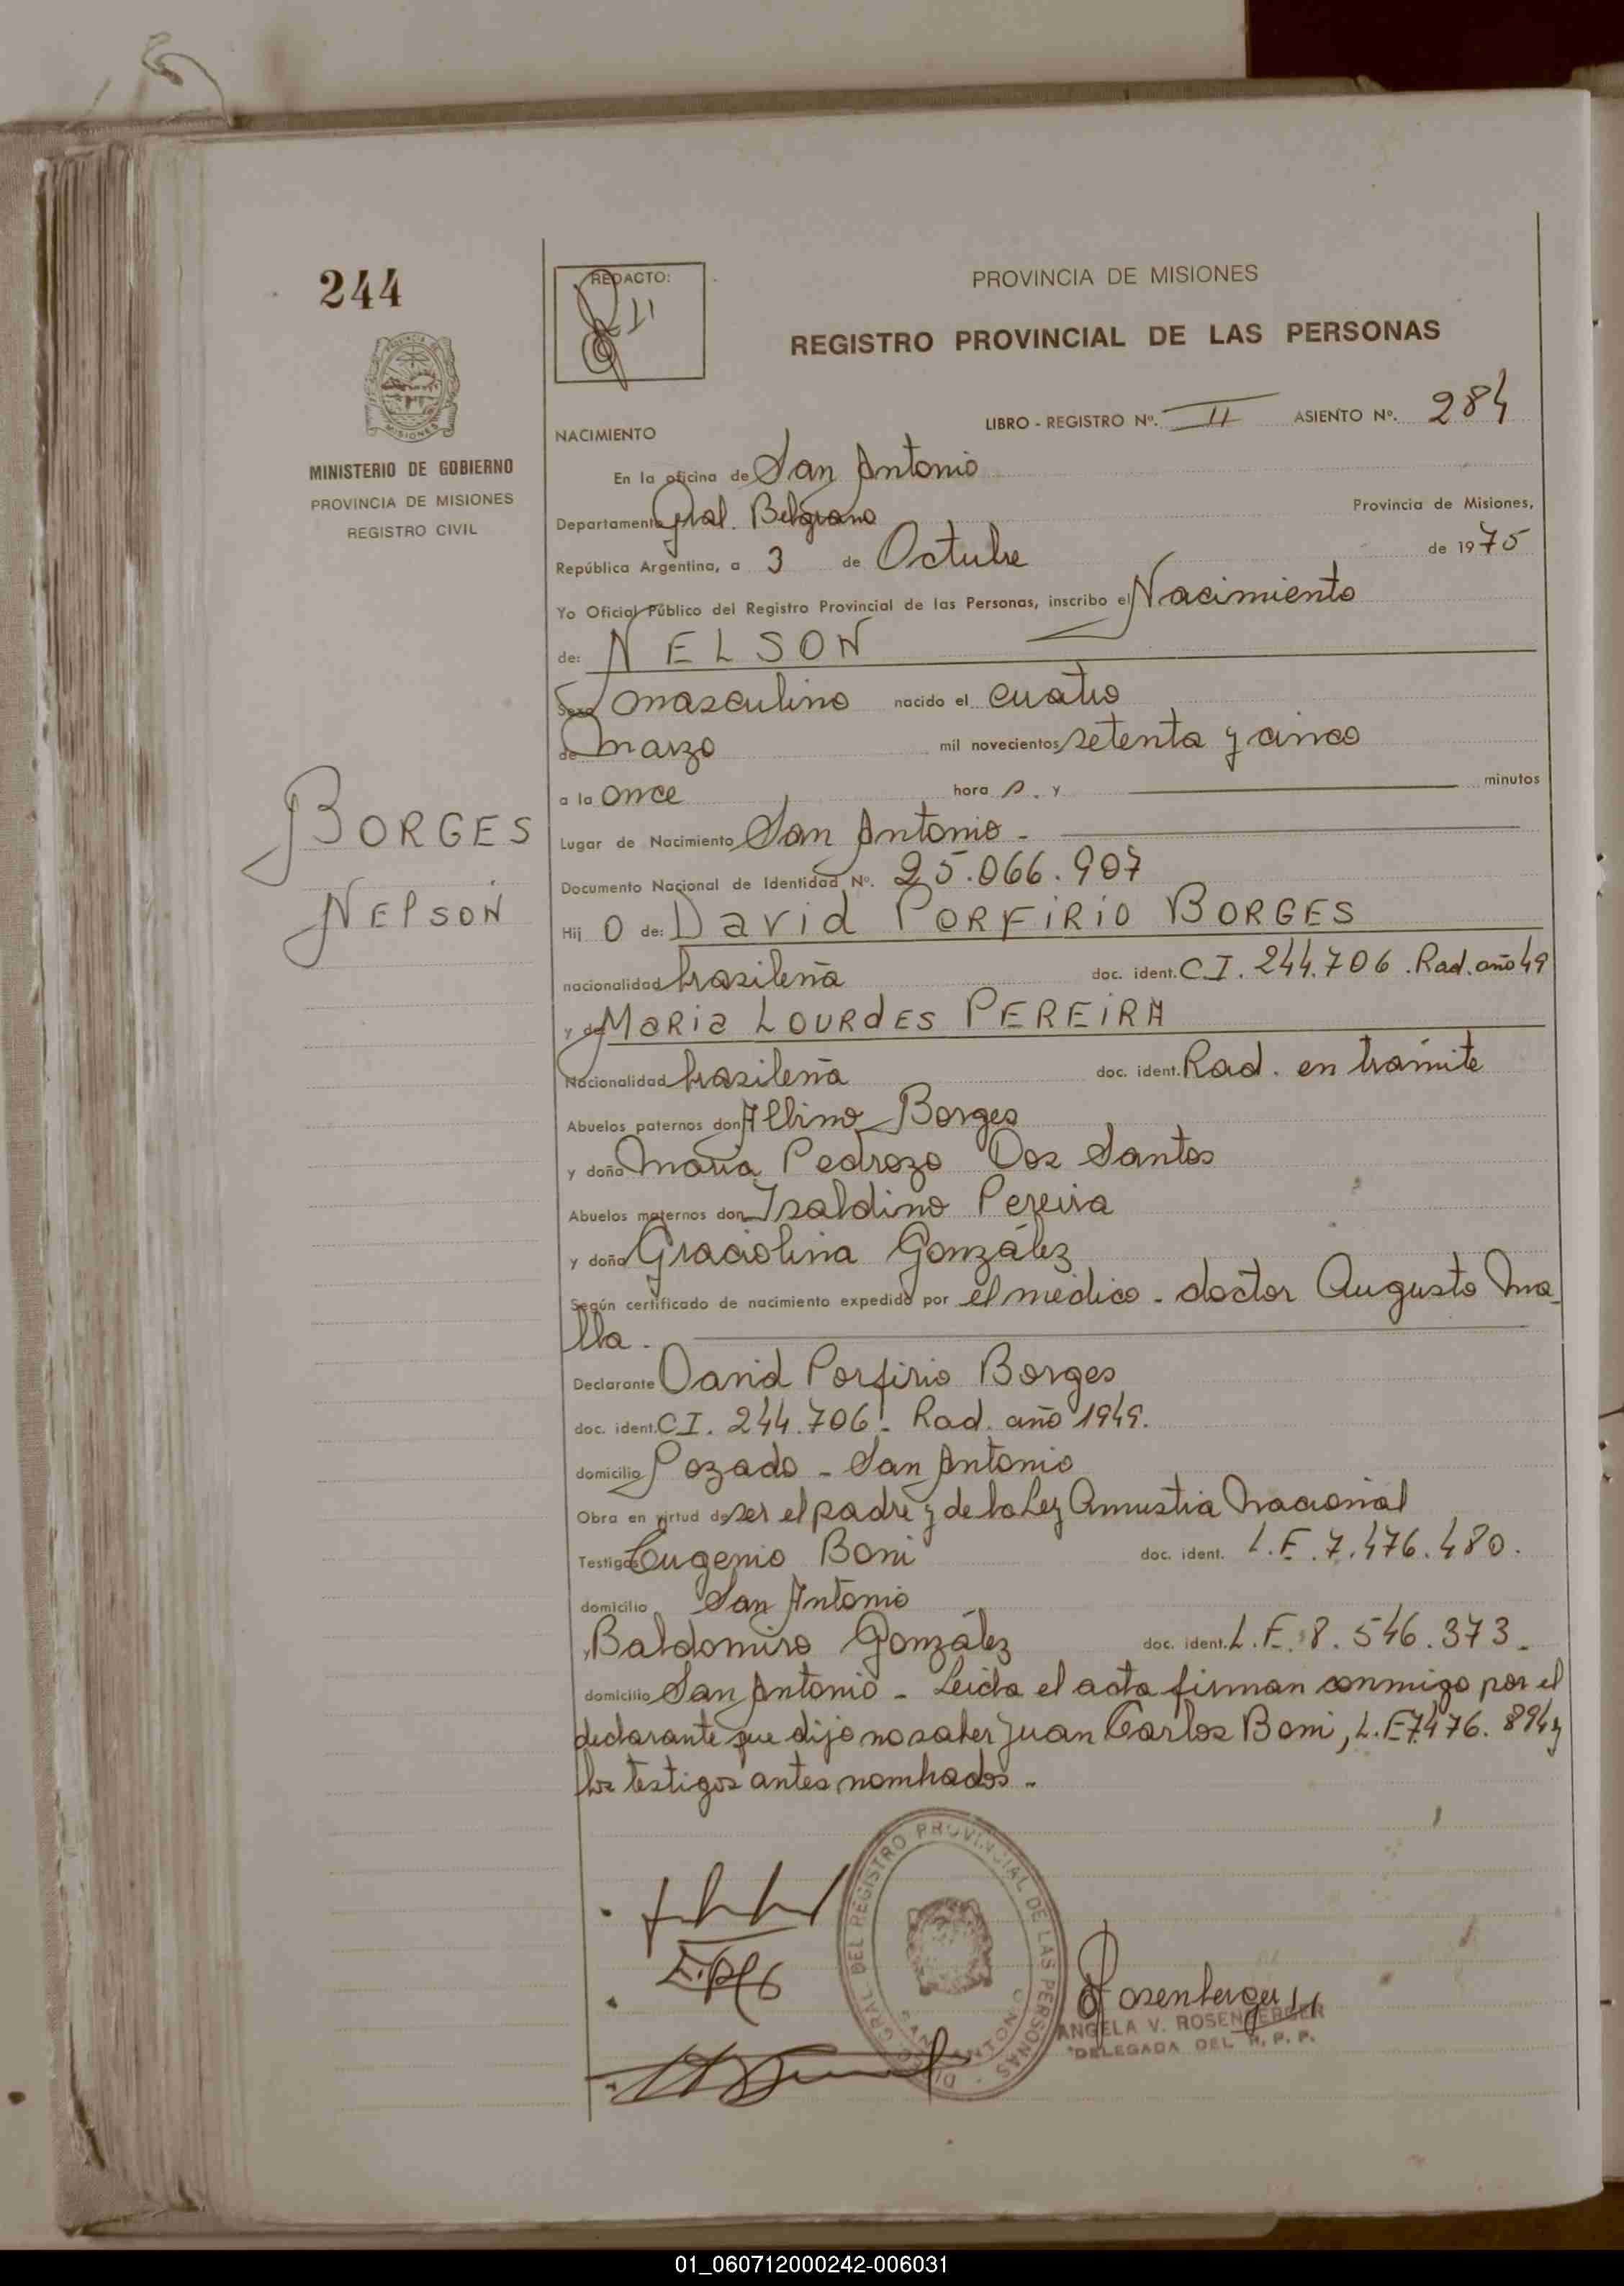 244
REDACTO:
PROVINCIA DE MISIONES
REGISTRO PROVINCIAL DE LAS PERSONAS
MINISTERIO DE GOBIERNO
PROVINCIA DE MISIONES
REGISTRO CIVIL
LIBRO - REGISTRO Nº. II ASIENTO Nº. 284
NACIMIENTO
En la oficina de San Antonio
Departamento Gral. Belgrano Provincia de Misiones,
República Argentina, a 3 de Octubre de 1975
Yo Oficial Público del Registro Provincial de las Personas, inscribo el Nacimiento
de: NELSON
Sexo masculino nacido el cuatro
de marzo mil novecientos setenta y cinco
a la once hora s. y minutos
BORGES
NELSON
Lugar de Nacimiento San Antonio -
Documento Nacional de Identidad Nº. 25.066.907
Hij o de: David PORFIRIO BORGES
nacionalidad brasileña doc. ident. C.I. 244.706. Rad. año 49
y de MARIA LOURDES PEREIRA
Nacionalidad brasileña doc. ident. Rad. en trámite
Abuelos paternos don Albino Borges
y doña María Pedrozo Dos Santos
Abuelos maternos don Isaldino Pereira
y doña Graciolina González
Según certificado de nacimiento expedido por el médico - doctor Augusto Ma-
lla.
Declarante David Porfirio Borges
doc. ident. C.I. 244.706 - Rad. año 1949.
domicilio Pozado - San Antonio
Obra en virtud de ser el padre y de la Ley Amnistia Nacional
Testigos Eugenio Boni doc. ident. L.E. 7.476.480.
domicilio San Antonio
Baldomiro González doc. ident. L.E. 8.546.373 -
domicilio San Antonio - Leida el acta firman conmigo por el
declarante que dijo no saber Juan Carlos Boni, L.E 7.476.894 y
los testigos antes nombrados -
DEL REGISTRO PROVINCIAL DE LAS PERSONAS
SAN ANTONIO
Rosenberger
ANGELA V. ROSENBERGER
DELEGADA DEL R. P. P.
01_060712000242-006031